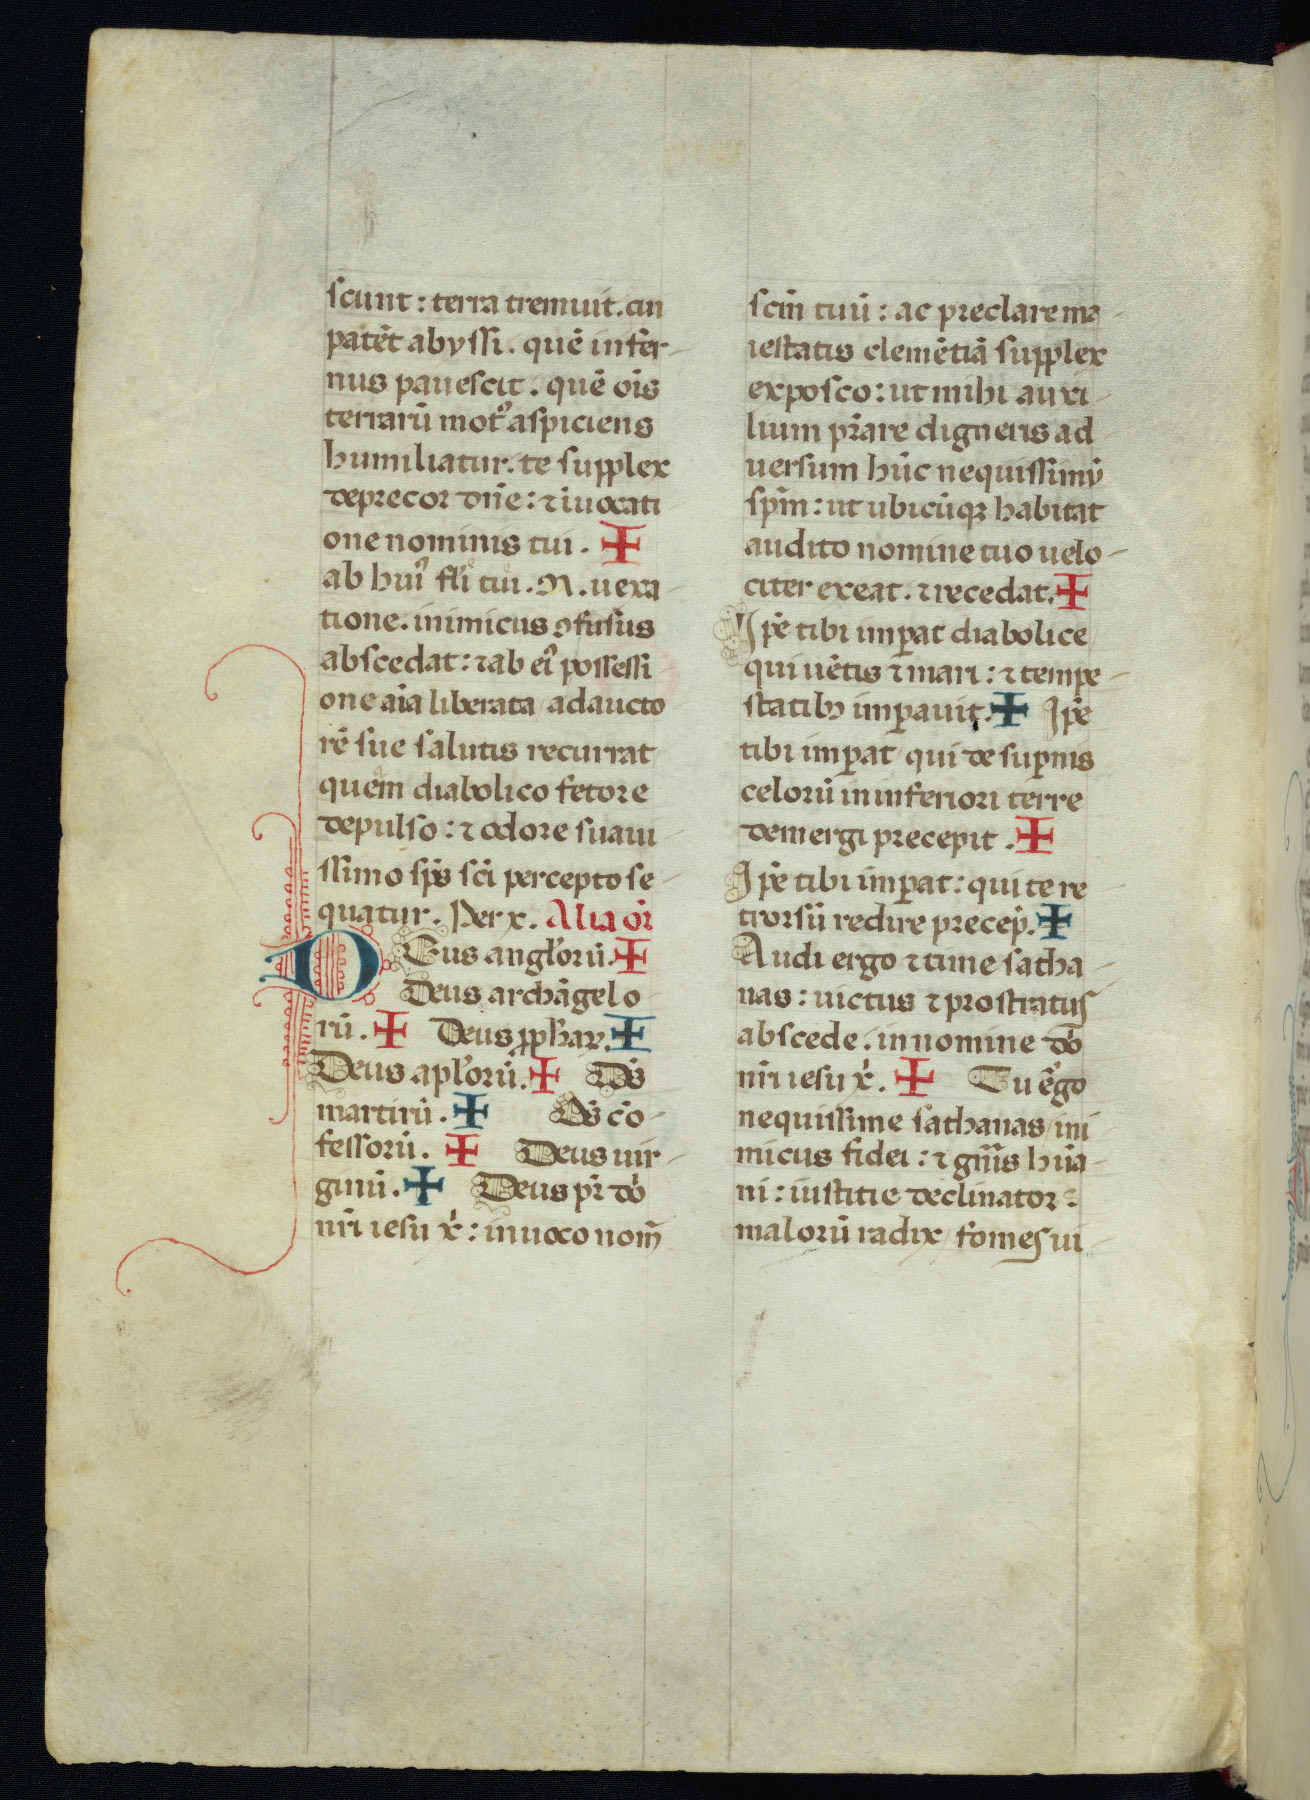 scunt : terra tremuit . cui
patēt abyssi . quē infer-
nus pauescit . quē oīs
terrarū motꝰ aspiciens
humiliatur . te supplex
deprecor dn̄e : ⁊ īuocati
one nominis tui . ✠
ab huiꝰ fl̄i tui . N . uexa-
tione . inimicus ꝯfusus
abscedat : ⁊ ab eiꝰ possessi-
one aīa liberata ad aucto
rē sue salutis recurrat
quem diabolico fetore
depulso : ⁊ odore suaui
ssimo sp̄s sc̄i percepto se-
quatur . Per x . Alia or̄
DEus angl̓orū . ✠
Deus archāgelo-
rū . ✠ Deus ꝓphaꝝ . ✠
Deus apl̓orū . ✠ Ds̄
martirū . ✠ Ds̄ cō-
fessorū . ✠ Deus uir-
ginū . ✠ Deus pr̄ dō
nr̄i iesu x̄ : inuoco nom̄
scm̄ tuū : ac preclare ma-
iestatis clemētiā supplex
exposco : ut mihi auxi-
lium p̄stare digneris ad-
uersum hūc nequissimū
spm̄ : ut ubicūqꝫ habitat
audito nomine tuo uelo-
citer exeat . ⁊ recedat . ✠
Ip̄e tibi imꝑat diabolice
qui uētis ⁊ mari : ⁊ tempe-
statibꝫ imꝑauit . ✠ Ip̄e
tibi imꝑat qui de suꝑnis
celorū in inferiori terre
demergi precepit . ✠
Ip̄e tibi imꝑat : qui te re
trorsū redire precep̄ . ✠
Audi ergo ⁊ time satha-
nas : uictus ⁊ prostratus
abscede . in nomine dō
nr̄i iesu x̄ . ✠ Tu ergo
nequissime sathanas ini
micus fidei : ⁊ gn̄is hūa-
ni : iustitie declinator :
malorū radix fomes ui-